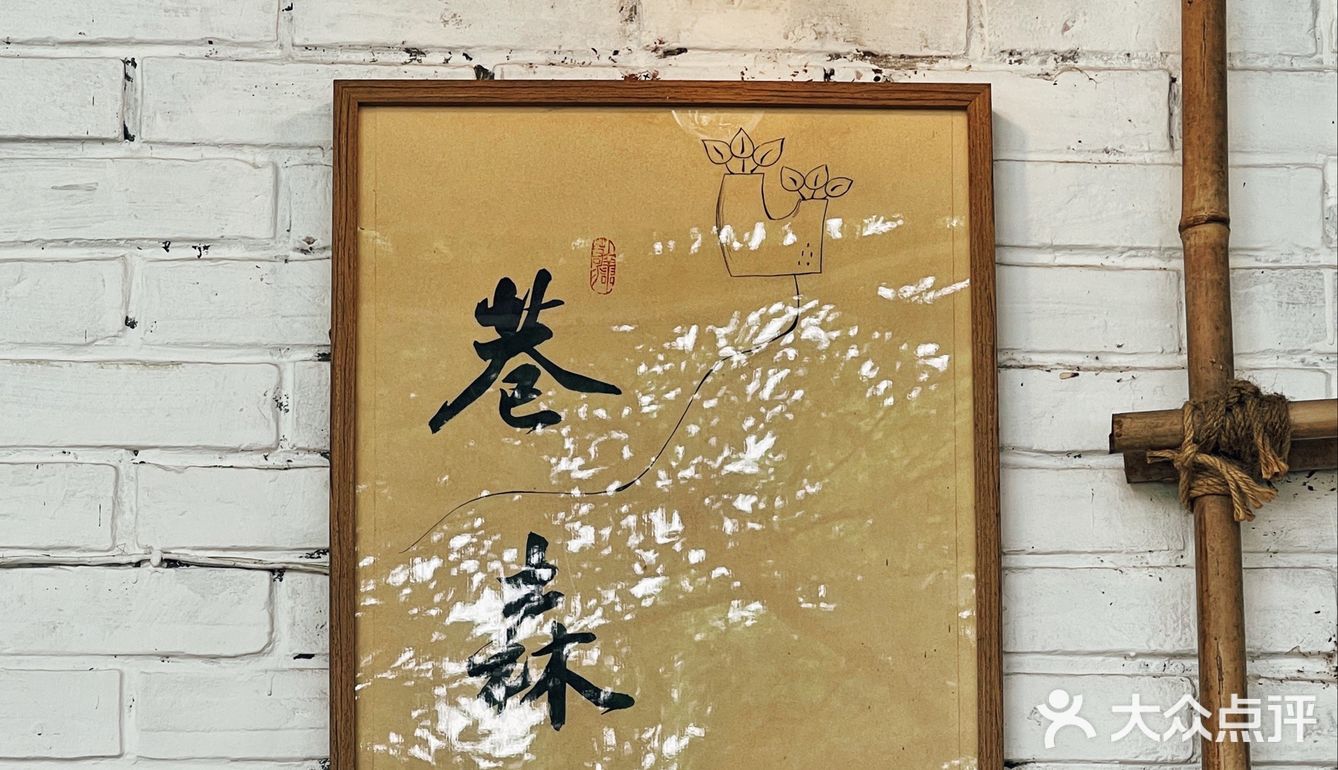 巷
森
大众点评